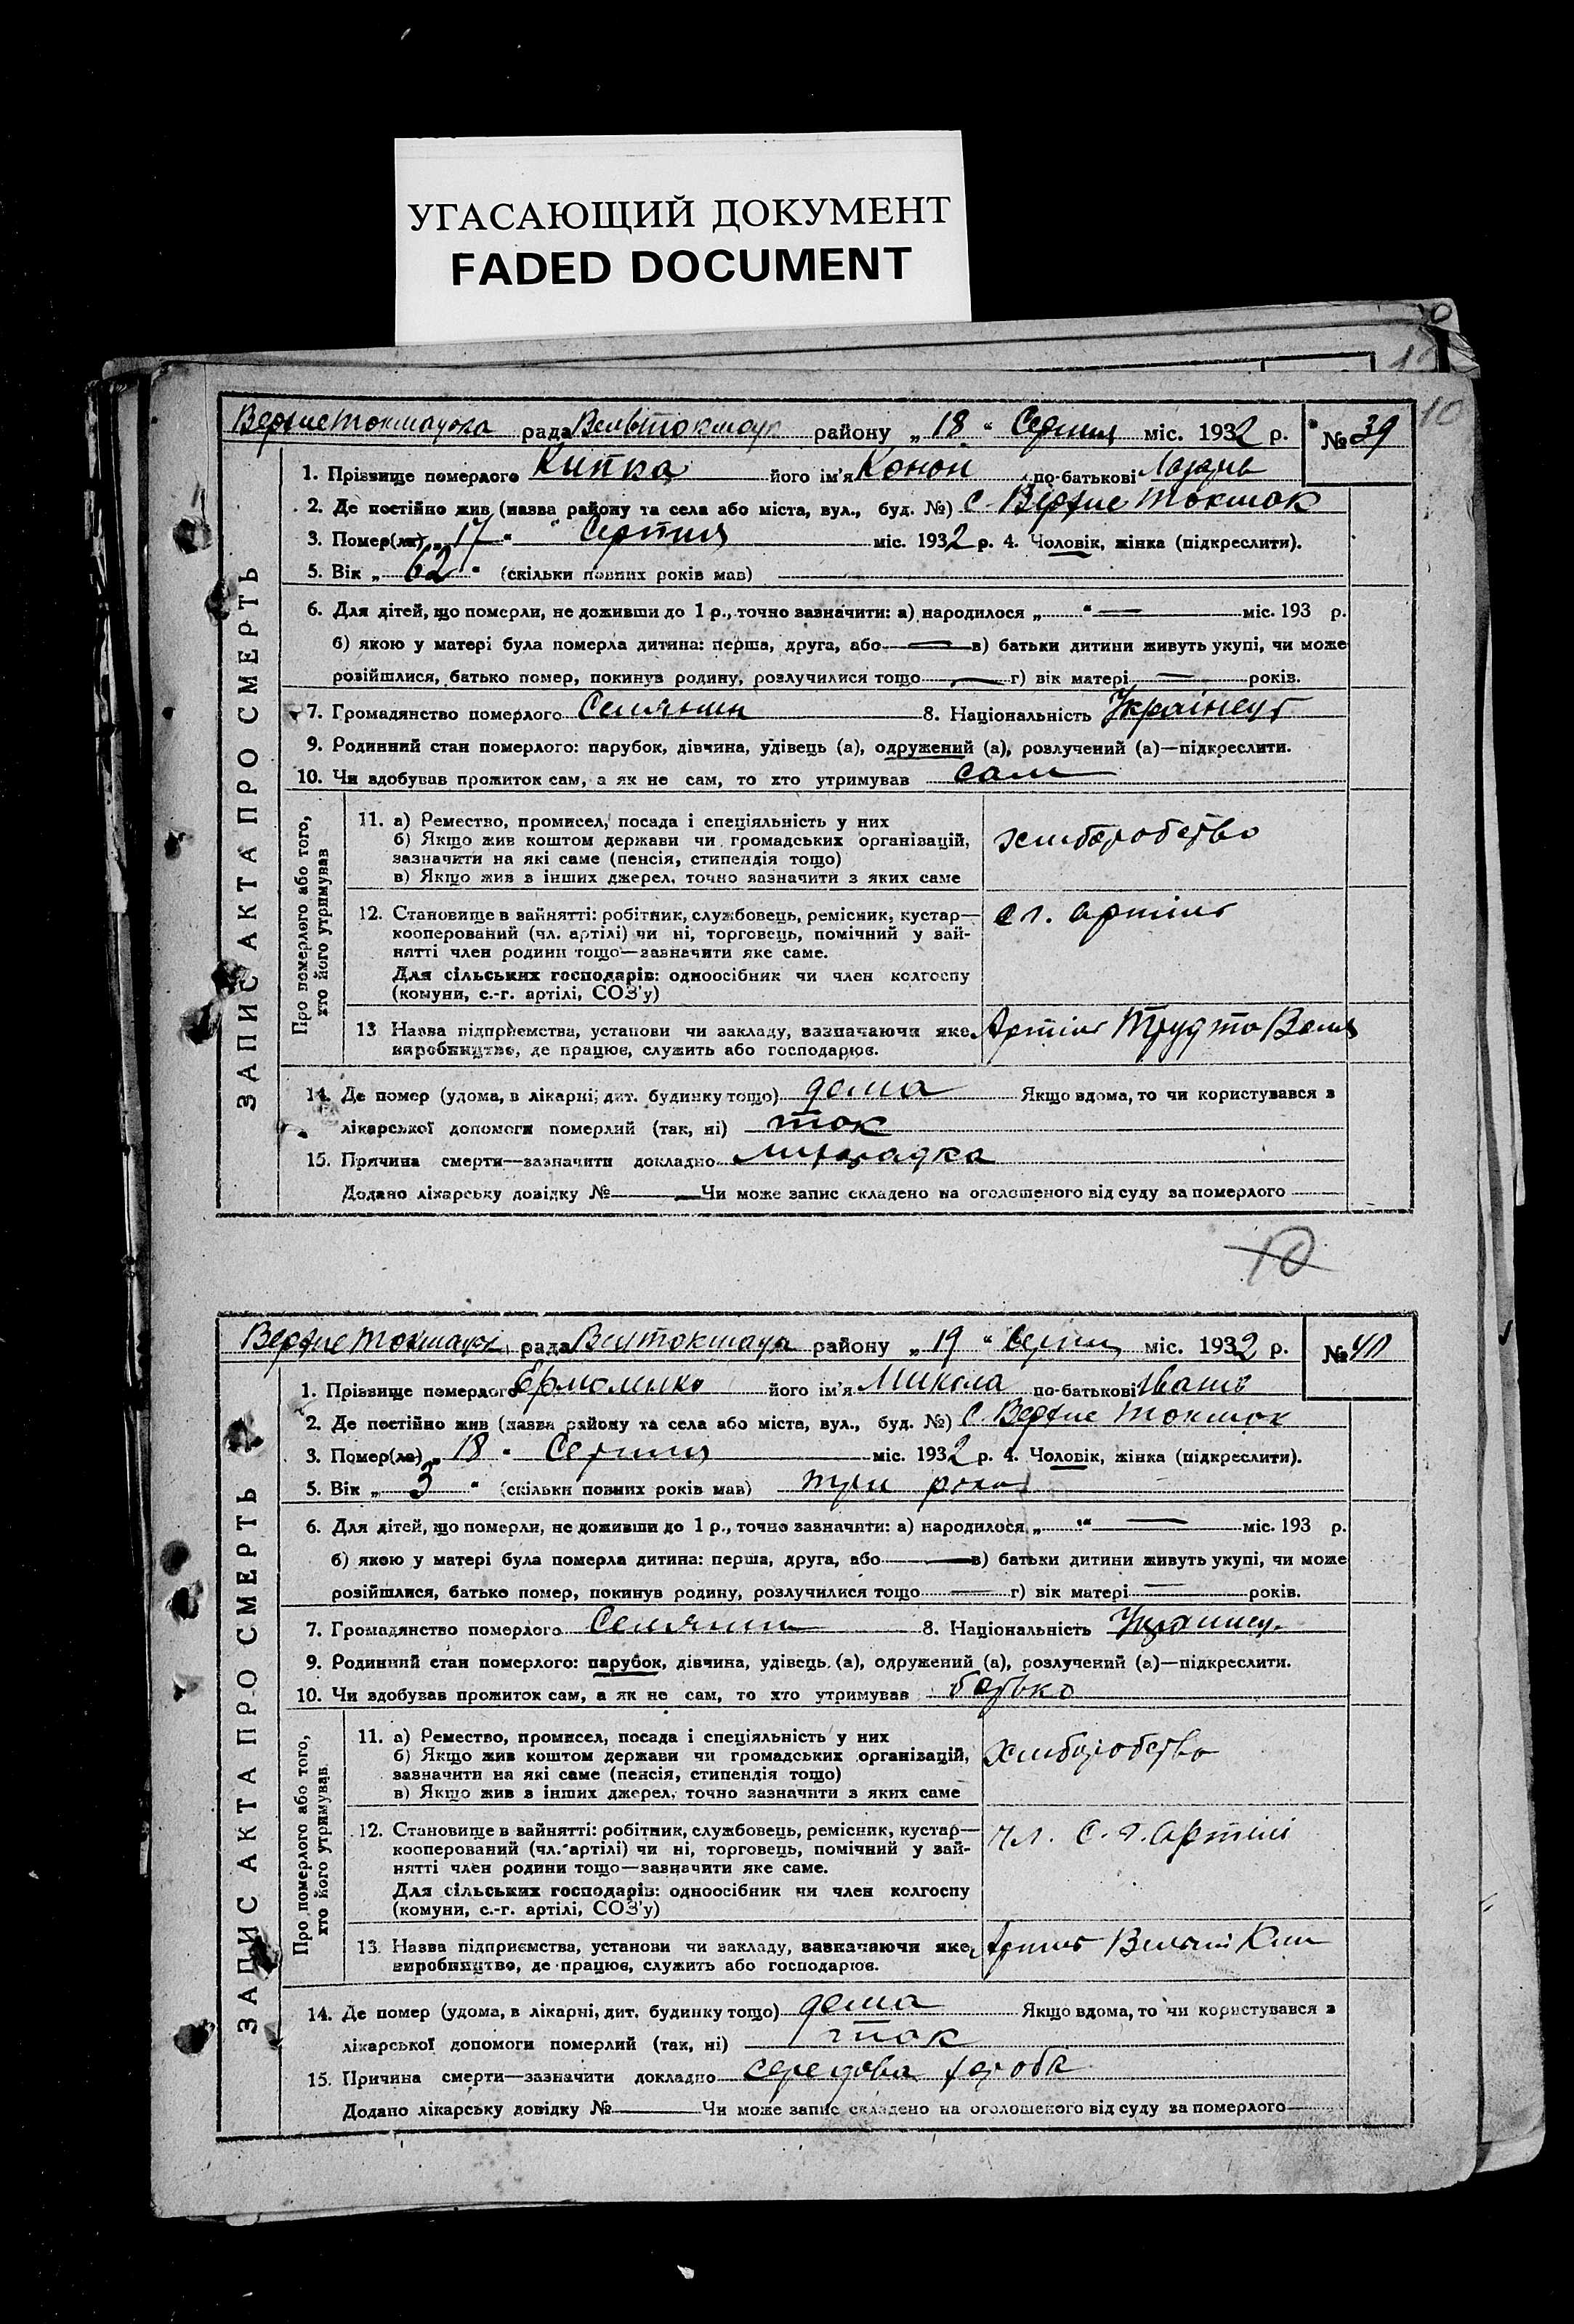 УГАСАЮЩИЙ ДОКУМЕНТ
FADED DOCUMENT
10
рада района „ 18 “ Серпня міс. 1932 р. № 39
1. Прізвище померлого Кипка його ім'я Конон по-батькові
2. Де постійно жив (назва району та села або міста, вул., буд. №) с. Верхне Токмак
3. Помер(ла) „ 17 “ Серпня міс. 1932 р. 4. Чоловік, жінка (підкреслити).
5. Вік „ 62 “ (скільки повних років мав)
6. Для дітей, що померли, не доживши до 1 р., точно зазначити: а) народилося „ “ міс. 193 р.
б) якою у матері була померла дитина: перша, друга, або в) батьки дитини живуть укупі, чи може
розійшлися, батько помер, покинув родину, розлучилися тощо г) вік матері років.
7. Громадянство померлого Селянин 8. Національність Українець
9. Родинний стан померлого: парубок, дівчина, удівець (а), одружений (а), розлучений (а)—підкреслити.
10. Чи здобував прожиток сам, а як не сам, то хто утримував сам
ЗАПИС АКТА ПРО СМЕРТЬ
Про померлого або того,
хто його утримував
11. а) Ремество, промисел, посада і спеціяльність у них
б) Якщо жив коштом держави чи громадських організацій,
зазначити на які саме (пенсія, стипендія тощо)
в) Якщо жив з інших джерел, точно зазначити з яких саме
хліборобство
12. Становище в занятті: робітник, службовець, ремісник, кустар—
кооперований (чл. артілі) чи ні, торговець, помічний у зай-
нятті член родини тощо—зазначити яке саме.
Для сільських господарів: одноосібник чи член колгоспу
(комуни, с.-г. артілі, СОЗ'у)
с г. артіль
13 Назва підприємства, установи чи закладу, зазначаючи яке
виробництво, де працює, служить або господарює.
Артіль Труд та Воля
14. Де помер (удома, в лікарні, дит. будинку тощо) дома Якщо вдома, то чи користувався з
лікарської допомоги померлий (так, ні) так
15. Причина смерти—зазначити докладно лихорадка
Додано лікарську довідку № Чи може запис складено на оголошеного від суду за померлого
10
рада района „ 19 “ Серпня міс. 1932 р. № 40
1. Прізвище померлого Ермоленко його ім'я Микола по-батькові Іванів
2. Де постійно жив (назва району та села або міста, вул., буд. №) с. Верхне Токмак
3. Помер(ла) „ 18 “ Серпня міс. 1932 р. 4. Чоловік, жінка (підкреслити).
5. Вік „ 3 “ (скільки повних років мав) три роки
6. Для дітей, що померли, не доживши до 1 р., точно зазначити: а) народилося „ “ міс. 193 р.
б) якою у матері була померла дитина: перша, друга, або в) батьки дитини живуть укупі, чи може
розійшлися, батько помер, покинув родину, розлучилися тощо г) вік матері років.
7. Громадянство померлого Селянин 8. Національність
9. Родинний стан померлого: парубок, дівчина, удівець (а), одружений (а), розлучений (а)—підкреслити.
10. Чи здобував прожиток сам, а як не сам, то хто утримував батько
ЗАПИС АКТА ПРО СМЕРТЬ
Про померлого або того,
хто його утримував
11. а) Ремество, промисел, посада і спеціяльність у них
б) Якщо жив коштом держави чи громадських організацій,
зазначити на які саме (пенсія, стипендія тощо)
в) Якщо жив з інших джерел, точно зазначити з яких саме
хліборобство
12. Становище в занятті: робітник, службовець, ремісник, кустар—
кооперований (чл. артілі) чи ні, торговець, помічний у зай-
нятті член родини тощо—зазначити яке саме.
Для сільських господарів: одноосібник чи член колгоспу
(комуни, с.-г. артілі, СОЗ'у)
чл. с. г. артілі
13. Назва підприємства, установи чи закладу, зазначаючи яке
виробництво, де працює, служить або господарює.
Артіль
14. Де помер (удома, в лікарні, дит. будинку тощо) дома Якщо вдома, то чи користувався з
лікарської допомоги померлий (так, ні) так
15. Причина смерти—зазначити докладно хороба
Додано лікарську довідку № Чи може запис складено на оголошеного від суду за померлого